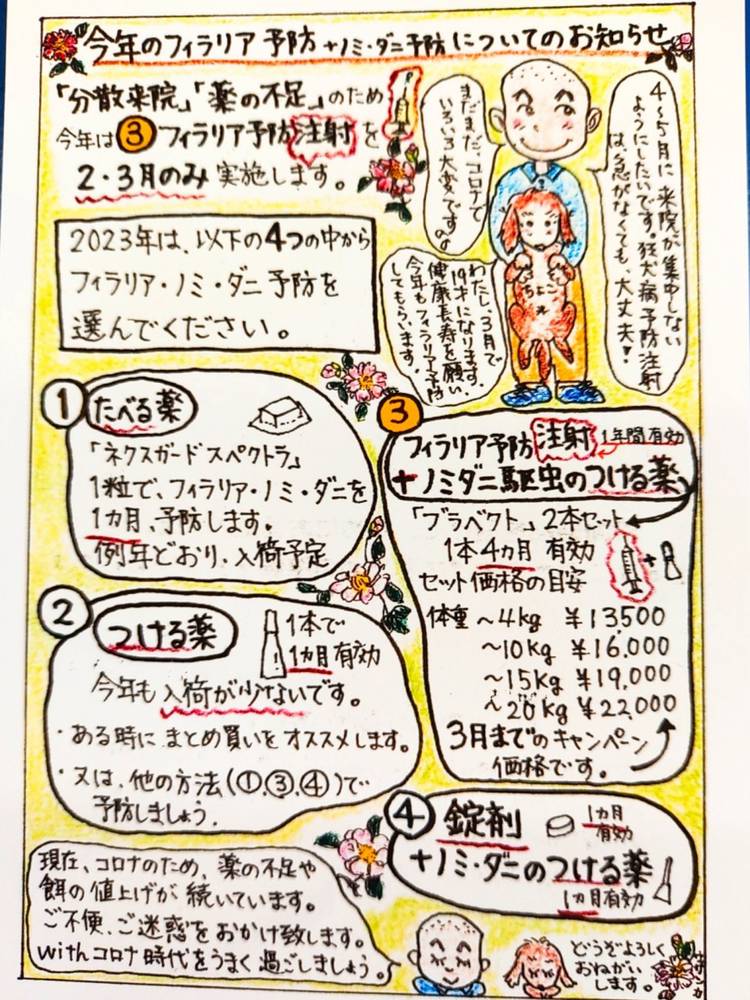 今年のフィラリア予防+ノミ・ダニ予防についてのお知らせ
「分散来院」「薬の不足」のため
今年は③フィラリア予防注射を
2・3月のみ実施します。
まだまだ、コロナで
いろいろ大変ですね
4～5月に来院が集中しない
ようにしたいです。狂犬病予防注射
は、急がなくても、大丈夫!
わたし、3月で
19才になります。
健康長寿を願い、
今年もフィラリア予防
してもらいます。
ちょこ
2023年は、以下の4つの中から
フィラリア・ノミ・ダニ予防を
選んでください。
① たべる薬
「ネクスガードスペクトラ」
1粒で、フィラリア・ノミ・ダニを
1カ月、予防します。
例年どおり、入荷予定
② つける薬
1本で
1カ月有効
今年も入荷が少ないです。
・ある時にまとめ買いをオススメします。
・又は、他の方法(①、③、④)で
予防しましょう.
③
フィラリア予防注射 1年間有効
+ノミダニ駆虫のつける薬
「ブラベクト」2本セット
1本4カ月 有効
セット価格の目安
体重 ～4kg ¥13,500
～10kg ¥16,000
～15kg ¥19,000
～20kg ¥22,000
3月までのキャンペーン
価格です。
④ 錠剤 1カ月
有効
+ノミ・ダニのつける薬
1カ月有効
現在、コロナのため、薬の不足や
餌の値上げが続いています。
ご不便、ご迷惑をおかけ致します。
withコロナ時代をうまく過ごしましょう。
どうぞよろしく
おねがい
します。